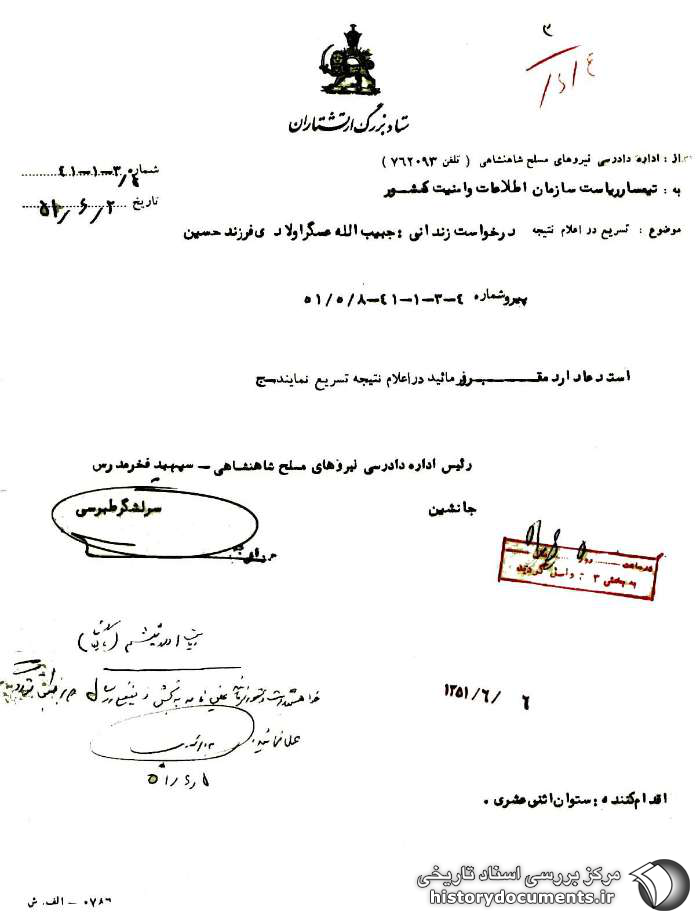 ۳
ستاد بزرگ ارتشتاران
از : اداره دادرسی نیروهای مسلح شاهنشاهی ( تلفن ۷۶۲۰۹۳ )
شماره ۴۱-۱-۳/۴
به : تیمسار ریاست سازمان اطلاعات و امنیت کشور
تاریخ ۵۱/۶/۲
موضوع : تسریع در اعلام نتیجه درخواست زندانی : حبیب الله عسگراولادی فرزند حسین
پیرو شماره ۴-۳-۱-۴۱-۵۱/۵/۸
استدعا دارد مقرر فرمائید در اعلام نتیجه تسریع نمایند-ج
رئیس اداره دادرسی نیروهای مسلح شاهنشاهی - سپهبد فخرمدرس
جانشین سرلشگر طبرسی
به بخش ۳ : واصل گردید
ریاست اداره
۱۳۵۱/۶/ ۶
عمل نمائید.
اقدام کننده : ستوان اثنی عشری .
۰۷۸۶ - الف. ش
مرکز بررسی اسناد تاریخی
historydocuments.ir